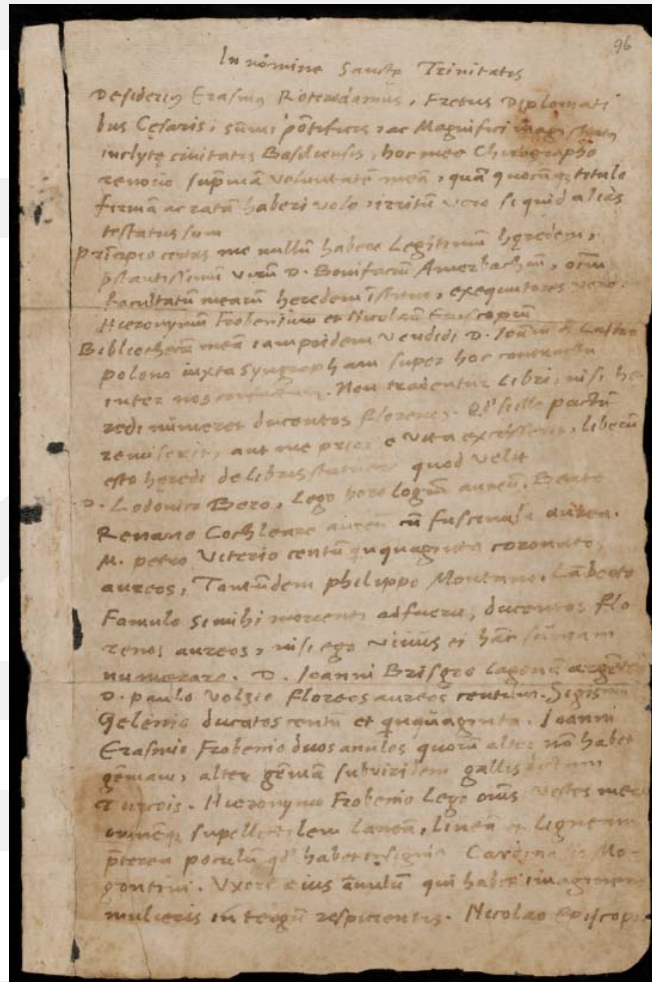 96
In nomine Sancte Trinitatis
Desiderius Erasmus Roterodamus, Fretus Diplomati
bus Cesaris, sūmi pōtificis, ac Magnifici magistratus
inclyte civitatis Basiliensis, hoc meo Chirographo
renovo suprēmā voluntatē meā, quā quocūq; titulo
firmā ac ratā haberi volo, irritū vero si quid aliās
testatus sum
Principio certus me nullū habere Legitimum heredem,
pstantissimū virū D. Bonifaciū Amerbachiū, oīm
facultatū mearū heredem īstituo, exequutores vero
Hieronymū Frobenium et Nicolaū Episcopiū
Bibliothecā meā iampridem vendidi D. Ioāni a Lasco
polono iuxta syngrapham super hoc contractu
inter nos confectam. Non tradentur Libri, nisi he
redi numeret ducentos florenos. Qd' si ille pactū
remiserit, aut me prior e vita excesserit, liberū
esto heredi de libris statuere quod velit
D. Lodovico Bero, Lego horologiū aureū. Beato
Renano Cochleare aureū cū fuscinula aurea.
M. petro Viterio centū qnquaginta coronatos
aureos, Tantūdem philippo Montano. Lāberto
Famulo si mihi morienti adfuerit, ducentos flo
renos aureos, nisi ego vivus ei hāc sūmam
numeraro. D. Ioanni Brisgeo lagenā argēteā
D. paulo Volzio florenos aureos centum. Sigismū
Gelenio ducatos centū et qnquaginta. Ioanni
Erasmio Frobenio duos anulos quorū alter nō habet
gēmam, alter gēmā subviridem gallis dictam
Turcois. Hieronymo Frobenio Lego oms vestes meas
omneq; supellectilem laneā, lineā et ligneam
pterea poculū qd' habet insignia Cardinalis Mo-
gontini. Uxori eius ānulū qui habet imaginem
mulieris in tergū respicientis. Nicolao episcopio